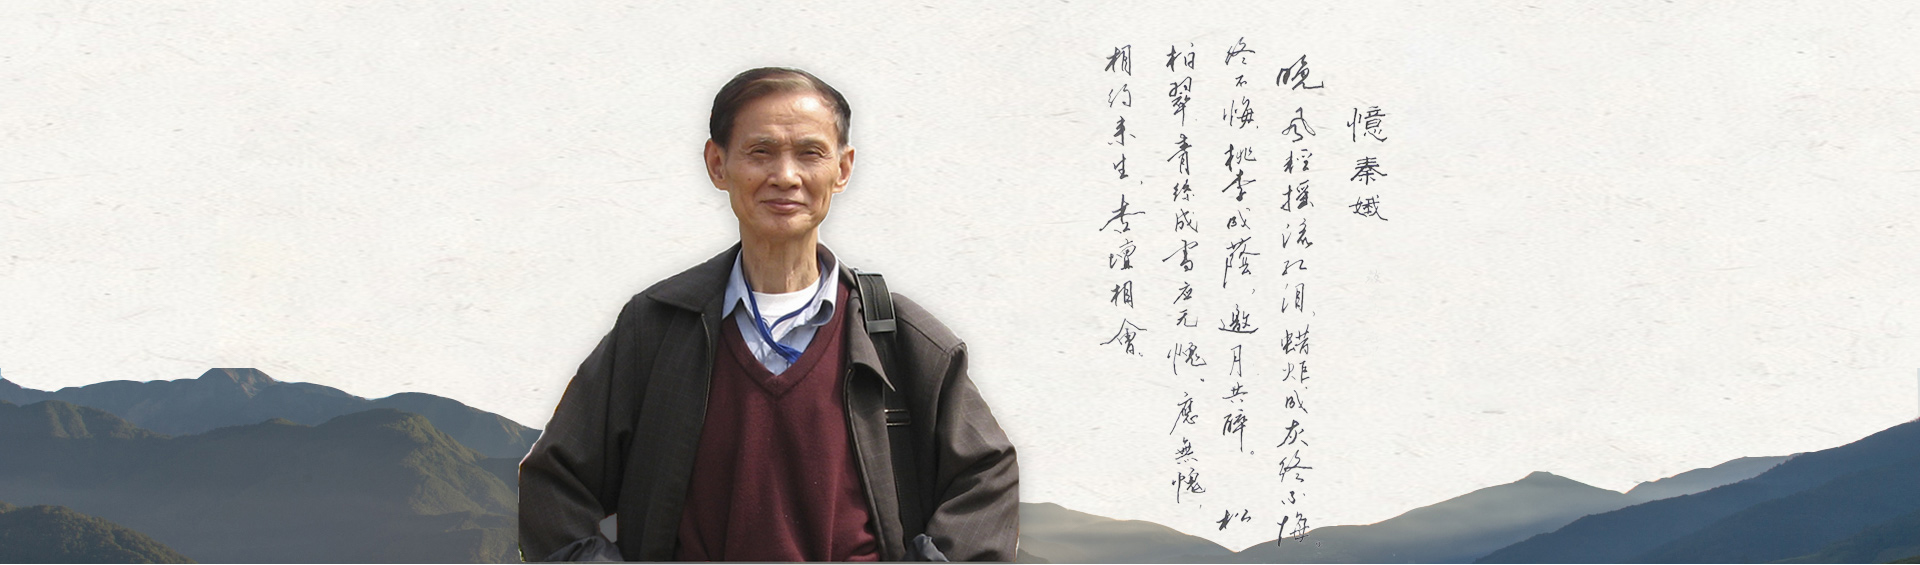 憶秦娥
晚风轻摇流红泪,蜡炬成灰终不悔,
终不悔,桃李成蔭,邀月共醉。松
柏翠青絲成雪应无愧。應無愧,
相约来生,杏壇相會。